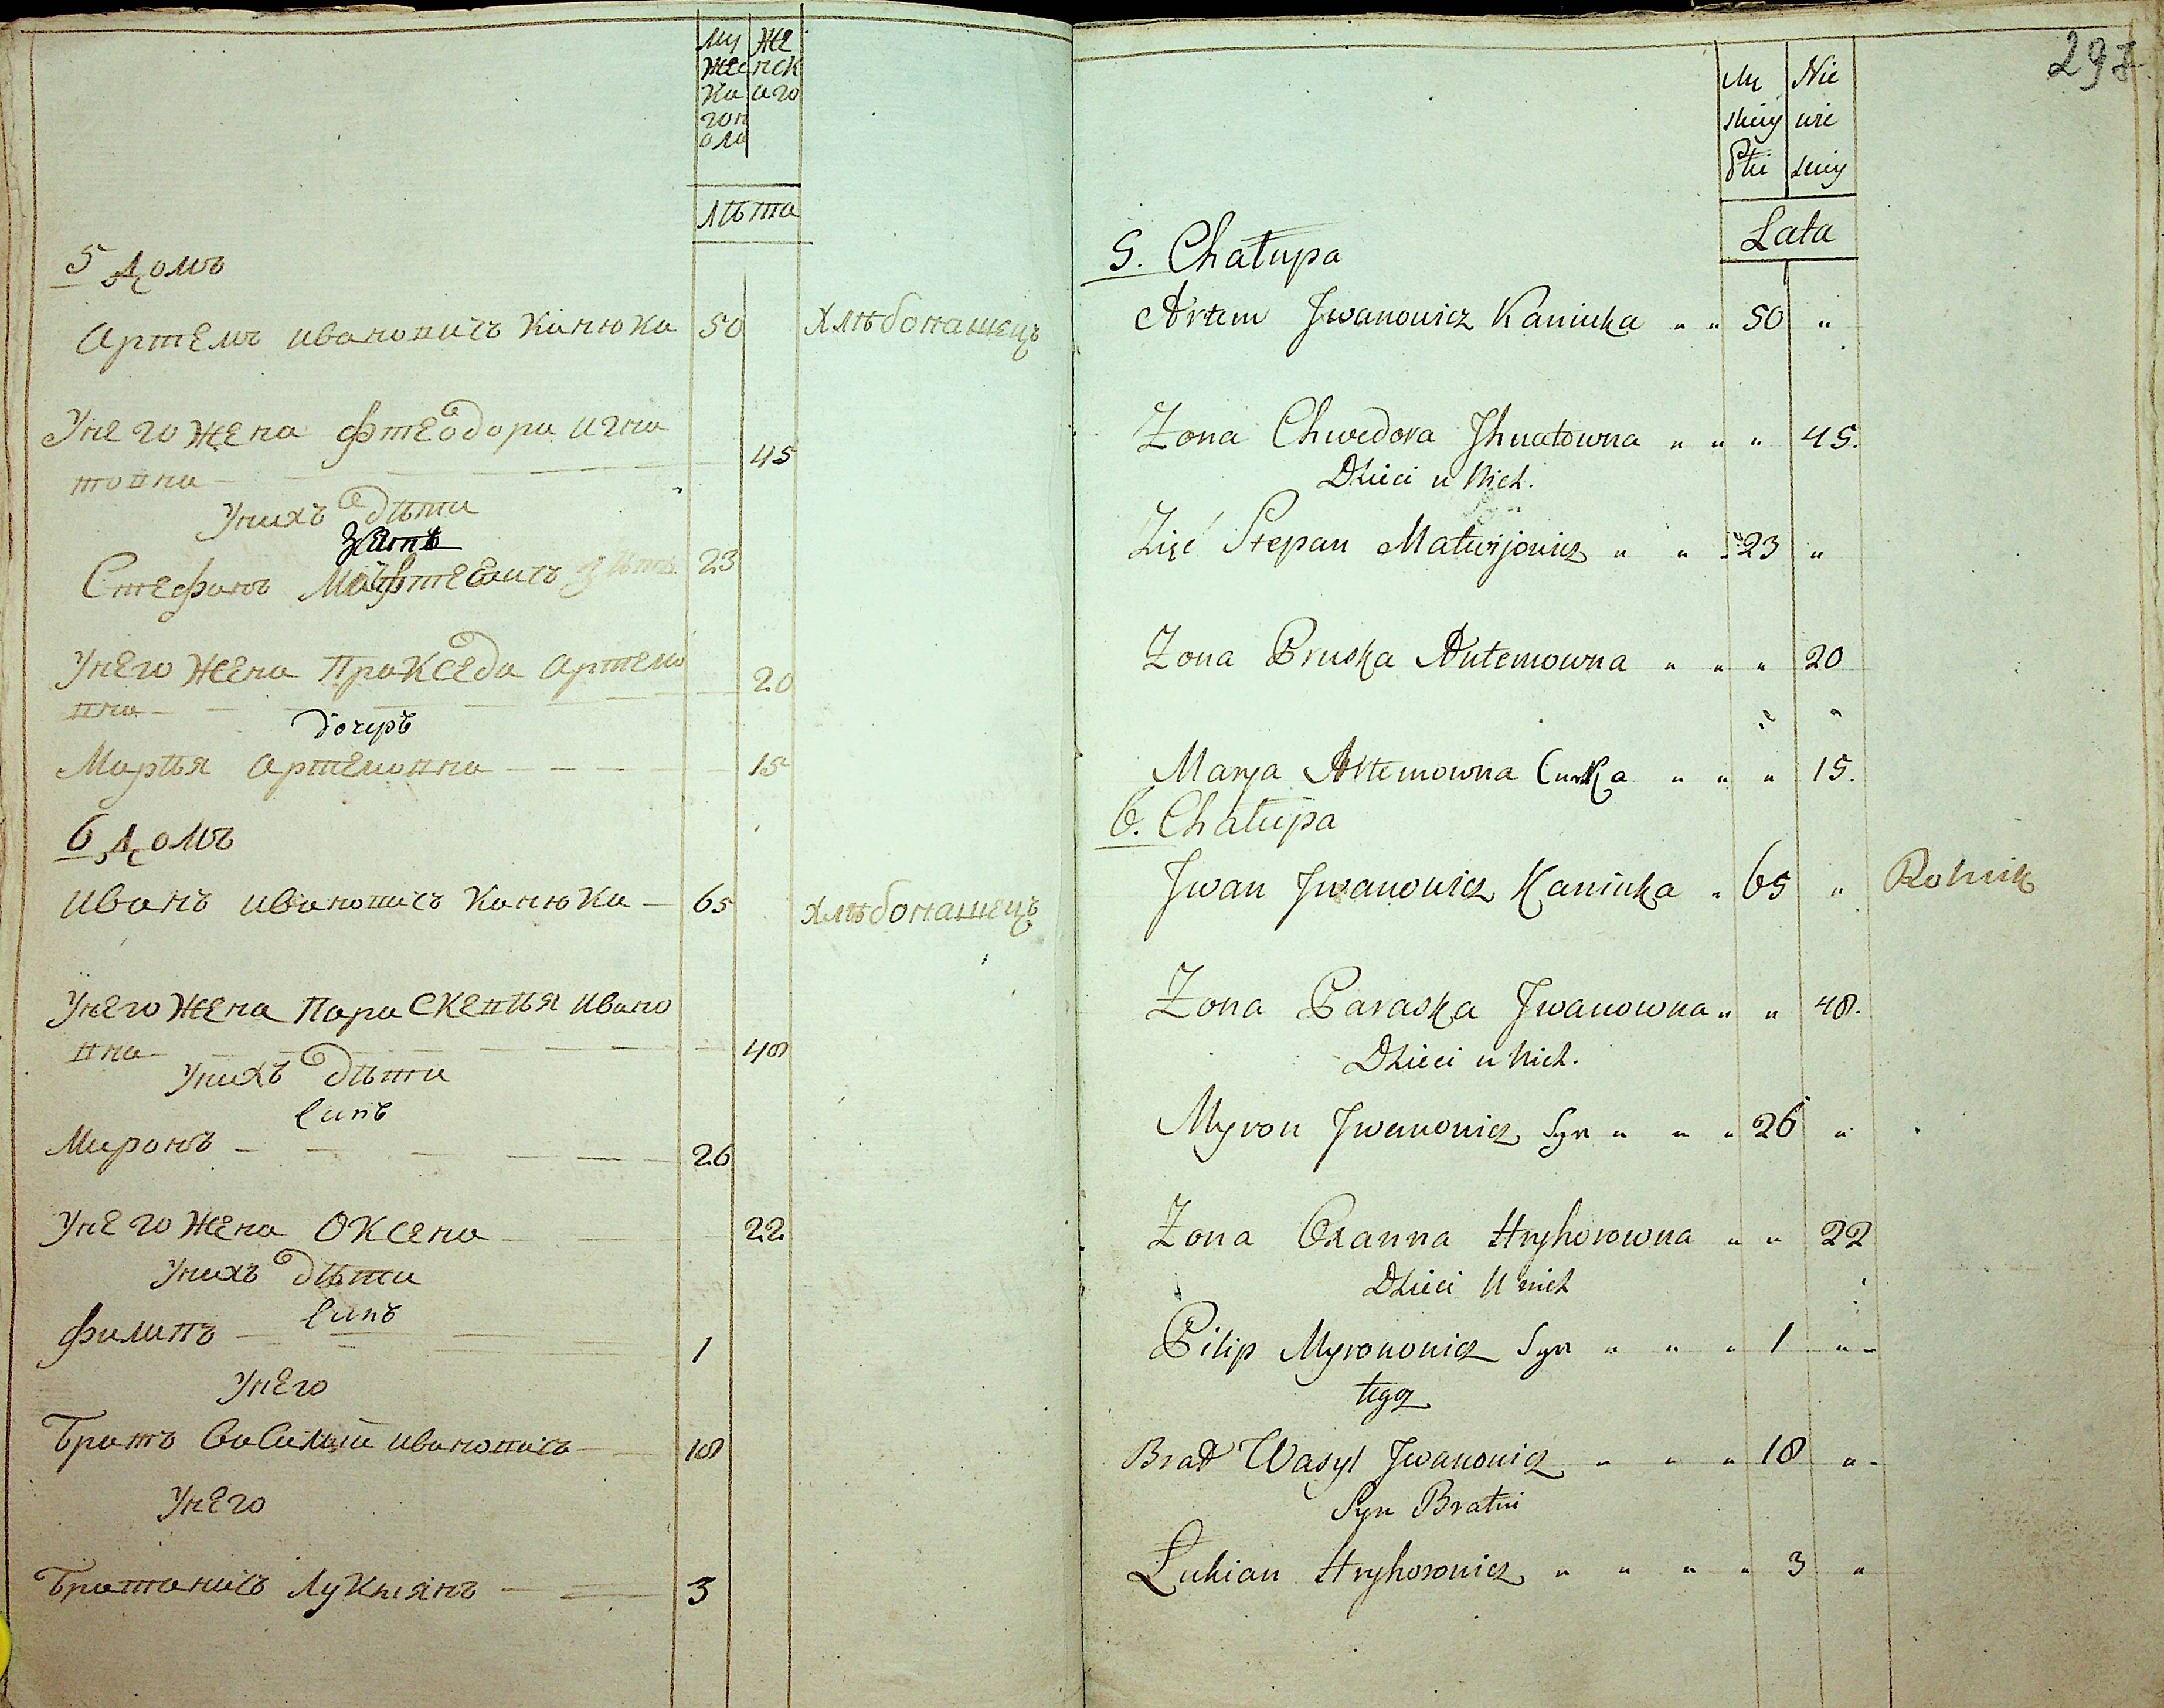 му же
жес нск
ка аго
гоп
ола
лѣта
5 домъ
Артемъ ивановичъ Канюка 50 хлѣбопашецъ
Унего жена фтеодора игна
товна 45
Унихъ дѣти
зять
Стефанъ Матфтеевичъ зять 23
Унего жена Пракседа артемо
вна 20
дочерь
Марья артемовна 15
6 домъ
иванъ ивановичъ Канюка 65 хлѣбопашецъ
Унего жена Параскевья ивано
вна 48
Унихъ дѣти
синъ
Миронъ 26
Унего жена Оксена 22
Унихъ дѣти
синъ
филипъ 1
Унего
братъ василий ивановичъ 18
Унего
братаничъ Лукиянъ 3
297
Mę Nie
skiey wie
Płci sciey
Lata
5. Chałupa
Artem Jwanowicz Kaniuka " " 50 "
Zona Chwedora Jhnatowna " " " 45.
Dzieci u Nich.
Zięć Stepan Matwijowicz " " " 23 "
Zona Pruska Artemowna " " " 20
Marya Artemowna Curka " " " 15.
6. Chałupa
Jwan Jwanowicz Kaniuka " 65 " Rolnik
Zona Paraska Jwanowna " " 48.
Dzieci u Nich.
Myron Jwanowicz Syn " " " 26 "
Zona Oxanna Hryhorowna " " 22
Dzieci U nich
Pilip Myronowicz Syn " " " 1 "
tegoz
Brat Wasyl Jwanowicz " " " 18 "
Syn Bratni
Łukian Hryhorowicz " " " " 3 "